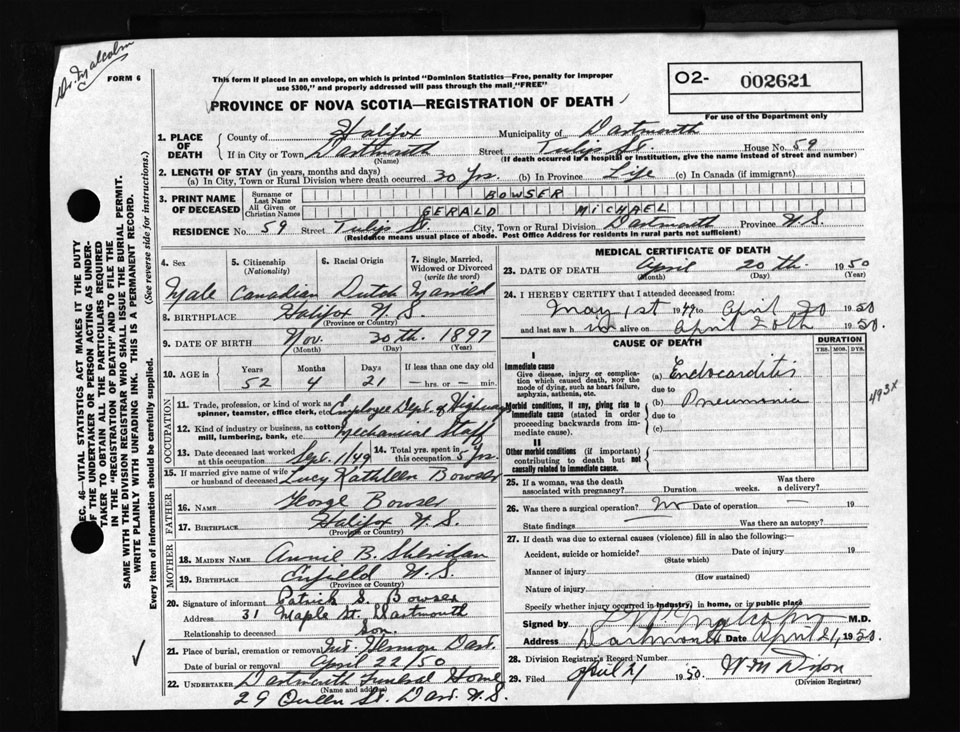 Dr. Malcolm
FORM 6
This form if placed in an envelope, on which is printed "Dominion Statistics—Free, penalty for improper
use $300," and properly addressed will pass through the mail, "FREE"
PROVINCE OF NOVA SCOTIA—REGISTRATION OF DEATH
O2- 002621
For use of the Department only
1. PLACE OF DEATH { County of Halifax Municipality of Dartmouth
If in City or Town Dartmouth Street Tulip St. House No. 59
(Name) (If death occurred in a hospital or institution, give the name instead of street and number)
2. LENGTH OF STAY (in years, months and days)
(a) In City, Town or Rural Division where death occurred 30 Yrs. (b) In Province Life (c) In Canada (if immigrant)
3. PRINT NAME OF DECEASED { Surname or Last Name BOWSER
All Given or Christian Names GERALD MICHAEL
RESIDENCE No. 59 Street Tulip St. City, Town or Rural Division Dartmouth Province N.S.
(Residence means usual place of abode. Post Office Address for residents in rural parts not sufficient)
4. Sex 5. Citizenship (Nationality) 6. Racial Origin 7. Single, Married, Widowed or Divorced (write the word)
Male Canadian Dutch Married
8. BIRTHPLACE Halifax N.S.
(Province or Country)
9. DATE OF BIRTH Nov. 30th. 1897
(Month) (Day) (Year)
10. AGE in { Years 52 Months 4 Days 21 If less than one day old — hrs. or — min.
OCCUPATION
11. Trade, profession, or kind of work as spinner, teamster, office clerk, etc. Employee Dept. of Highways
12. Kind of industry or business, as cotton mill, lumbering, bank, etc. Mechanical Staff
13. Date deceased last worked at this occupation Sept. 1/49 14. Total yrs. spent in this occupation 5 Yrs.
15. If married give name of wife or husband of deceased Lucy Kathleen Bowser
FATHER
16. NAME George Bowser
17. BIRTHPLACE Halifax N.S.
(Province or Country)
MOTHER
18. MAIDEN NAME Annie B. Sheridan
19. BIRTHPLACE Enfield N.S.
(Province or Country)
20. Signature of informant Patrick S. Bowser
Address 31 Maple St. Dartmouth
Relationship to deceased Son.
21. Place of burial, cremation or removal Mt. Hermon Dart.
Date of burial or removal April 22/50
22. UNDERTAKER Dartmouth Funeral Home
(Name and address)
29 Queen St. Dart. N.S.
MEDICAL CERTIFICATE OF DEATH
23. DATE OF DEATH April 20th. 1950
(Month) (Day) (Year)
24. I HEREBY CERTIFY that I attended deceased from:
May 1st 1949 to April 20 1950
and last saw him alive on April 20th 1950.
CAUSE OF DEATH
DURATION
YRS. MOS. DYS.
I
Immediate cause
Give disease, injury or complication which caused death, NOT the mode of dying, such as heart failure, asphyxia, asthenia, etc.
(a) Endocarditis
due to
Morbid conditions, if any, giving rise to immediate cause (stated in order proceeding backwards from immediate cause).
(b) Pneumonia
due to
(c)
493X
II
Other morbid conditions (if important) contributing to death but not causally related to immediate cause.
25. If a woman, was the death associated with pregnancy? Duration weeks. Was there a delivery?
26. Was there a surgical operation? No Date of operation 19
State findings Was there an autopsy?
27. If death was due to external causes (violence) fill in also the following:—
Accident, suicide or homicide? Date of injury 19
(State which)
Manner of injury
(How sustained)
Nature of injury
Specify whether injury occurred in industry, in home, or in public place
Signed by Malcolm M.D.
Address Dartmouth Date April 21, 1950.
28. Division Registrar's Record Number
29. Filed April 21 1950. W M Dixon
(Division Registrar)
SEC. 46—VITAL STATISTICS ACT MAKES IT THE DUTY
OF THE UNDERTAKER OR PERSON ACTING AS UNDER-
TAKER TO OBTAIN ALL THE PARTICULARS REQUIRED
IN THE "REGISTRATION OF DEATH" AND TO FILE THE
SAME WITH THE DIVISION REGISTRAR WHO SHALL ISSUE THE BURIAL PERMIT.
WRITE PLAINLY WITH UNFADING INK. THIS IS A PERMANENT RECORD.
Every item of information should be carefully supplied. (See reverse side for instructions.)